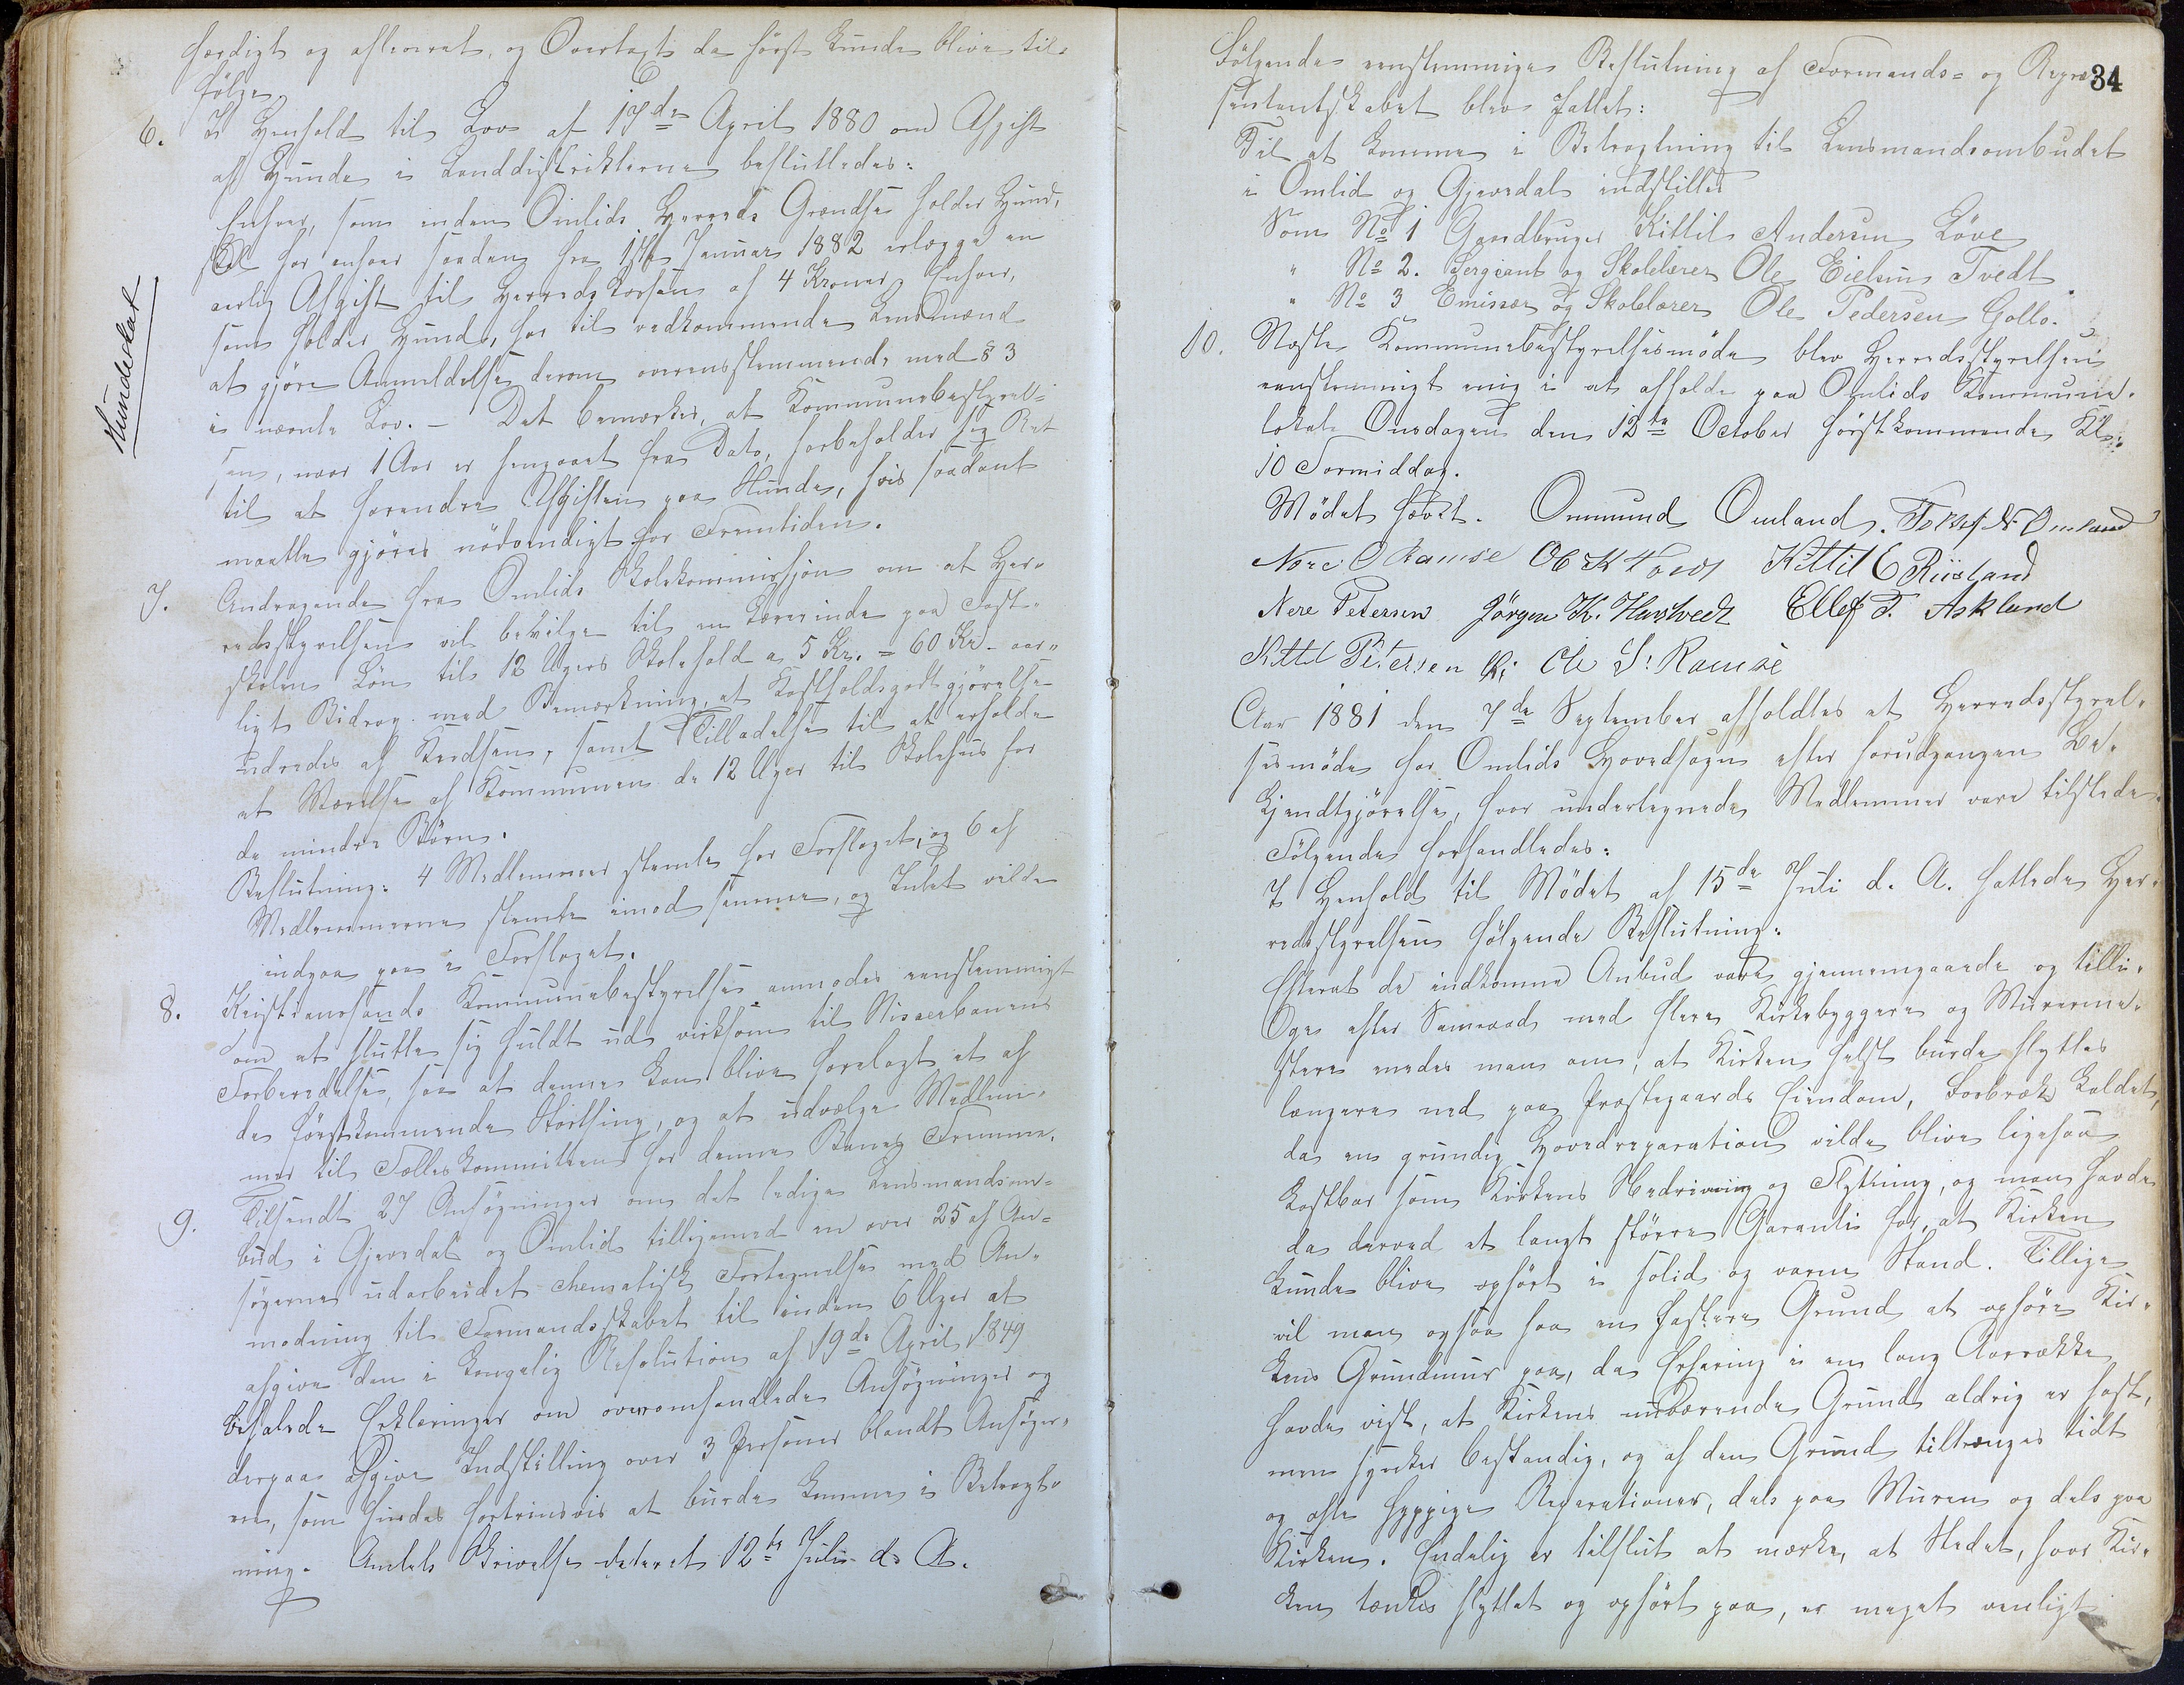 færdigt og afleveret, og Overtaxt da först kunde blive til-
følge.
6. I Henhold til Lov af 17de April 1880 om Afgift
af Hunde i Landdistrikterne besluttedes:
Enhver, som inden Omlids Herreds Grændse holder Hund,
skal for enhver saadan fra 1ste Januar 1882 erlægge en
aarlig Afgift til Herredskassen af 4 Kroner. Enhver,
som holder Hund, har til vedkommende Lensmand
at gjöre Anmeldelse derom overensstemmende med § 3
i nævnte Lov. – Det bemærkes, at Kommunebestyrel-
sen, naar 1 Aar er hengaaet fra Dato, forbeholder sig Ret
til at forandre Afgiften paa Hunde, hvis saadant
maatte gjöres nödvendigt for Fremtiden.
Hundeskat
7. Andragende fra Omlids Skolekommission om at Her-
redsstyrelsen vil bevilge til en Lærerinde paa Fast-
skolen Lön til 12 Ugers Skolehold a 5 Kr. = 60 Kr. aar-
ligt Bidrag med Bemærkning, at Kostholdsgodtgjörelse
udredes af Kredsen, samt Tilladelse til at erholde
et Værelse af Kommunen de 12 Uger til Skolehus for
de mindre Börn.
Beslutning: 4 Medlemmer stemte for Forslaget, og 6 af
Medlemmerne stemte imod samme, og Intet vilde
indgaa paa i Forslaget.
8. Kristianssands Kommunebestyrelse anmodes eenstemmigt
om at slutte sig fuldt ud virksom til Nisserbanens
Forberedelse, saa at denne kan blive forelagt et af
de förstkommende Storthing, og at udvælge Medlem-
mer til Fælleskommiteen for denne Banes Fremme.
9. Tilsendt 27 Ansögninger om det ledige Lensmandsom-
bud i Gjevedal og Omlid tilligemed en over 25 af An-
sögerne udarbeidet schematisk Fortegnelse med An-
modning til Formandsskabet til inden 6 Uger at
afgive den i kongelig Resolution af 19de April 1849
befalede Erklæringer om overomhandlede Ansögninger og
derpaa afgive Indstilling over 3 Personer blandt Ansöger-
ne, som findes fortrinsvis at burde komme i Betragt-
ning. Amtets Skrivelse dateret 12te Juli d. A.
34
Fölgende eenstemmige Beslutning af Formands- og Repræ-
sentantskabet blev fattet:
Til at komme i Betragtning til Lensmandsombudet
i Omlid og Gjevedal indstilles
Som No 1 Gaardbruger Kittil Andersen Löve
" No 2. Sergeant og Skolelærer Ole Eielsen Tvedt.
" No 3 Emissær og Skolelærer Ole Pedersen Gollo.
10. Næste Kommunebestyrelsesmöde blev Herredsstyrelsen
eenstemmigt enig i at afholde paa Omlids Kommune-
lokale Onsdagen den 12te October förstkommende Kl.
10 Formiddag.
Mödet hævet. Ommund Omland. Tellef N Omland
Nere O Ramse Ole K Tveit Kittil C Riisland
Nere Petersen Jörgen K. Hasteveit Ellef T. Askland
Kittil Petersen Ole S. Ramse
Aar 1881 den 7de September afholdtes et Herredsstyrel-
sesmöde for Omlids Hovedsogn efter forudgangen Be-
kjendtgjörelse, hvor undertegnede Medlemmer vare tilstede.
Fölgende forhandledes:
I Henhold til Mödet af 15de Juli d. A. fattede Her-
redsstyrelsen fölgende Beslutning:
Efterat de indkomne Anbud vare gjennemgaaede og tilli-
ge efter Samraad med flere Kirkebyggere og Murerme-
stere enedes man om, at Kirken helst burde flyttes
længere ned paa Præstegaards Eiendom, kaldet,
da en grundig Hovedreparation vilde blive ligesaa
kostbar som Kirkens Nedrivning og Flytning, og man havde
da derved et langt större Garanti for, at Kirken
kunde blive opfört i solid og varm Stand. Tillige
vil man ogsaa faa en fastere Grund at opföre Kir-
kens Grundmur paa, da Erfaring i en lang Aarrække
havde vist, at Kirkens nuværende Grund aldrig er fast,
men synker bestandig, og af den Grund tiltrænges tidt
og ofte hyppige Reparationer, dels paa Muren og dels paa
Kirken. Endelig er tilslut at mærke, at Stedet, hvor Kir-
ken tænkes flyttet og opfört paa, er meget venligt